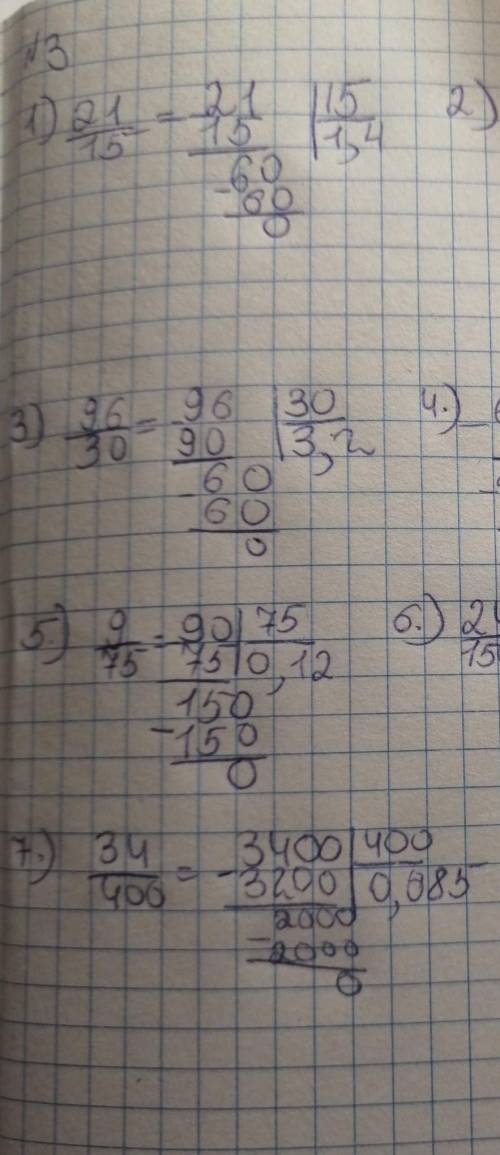 №3
1) 21/15 = 21 | 15
15 | 1,4
60
- 60
0
2)
3) 96/30 = 96 | 30
90 | 3,2
- 60
60
0
4.) -
5.) 9/75 = 90 | 75
75 | 0,12
150
- 150
0
6.)
15
7.) 34/400 = - 3400 | 400
3200 | 0,085
2000
- 2000
0